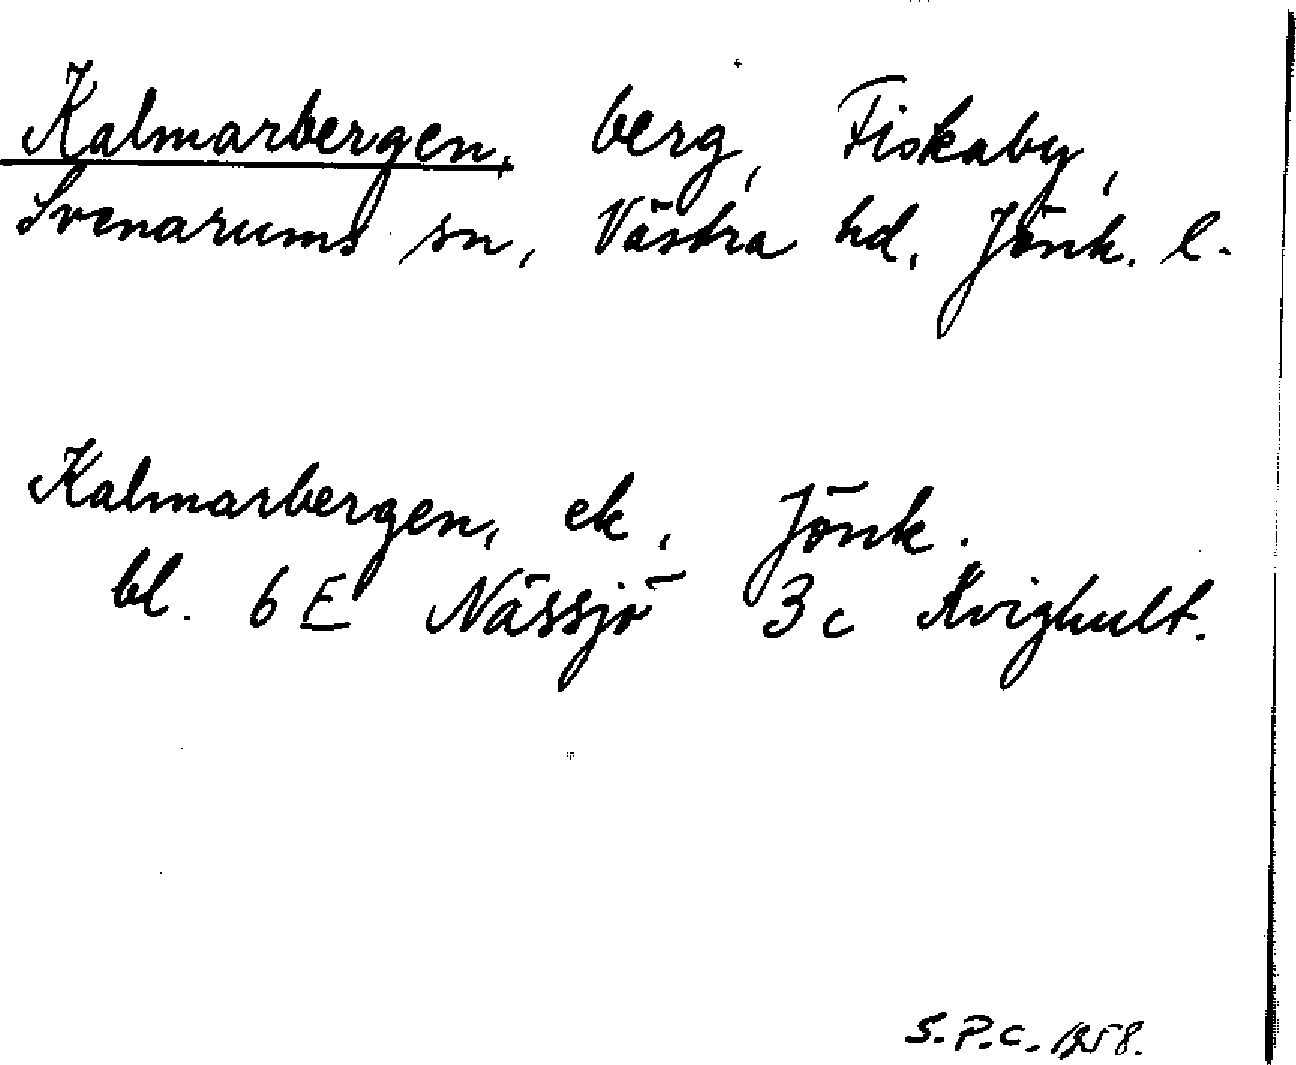 Kalmarbergen, berg, Fiskaby,
Svenarums sn, Västra hd, Jönk. l.
Kalmarbergen, ek, Jönk.
bl. 6 E Nässjö 3 c Kvighult.
S.P.C. 1958.